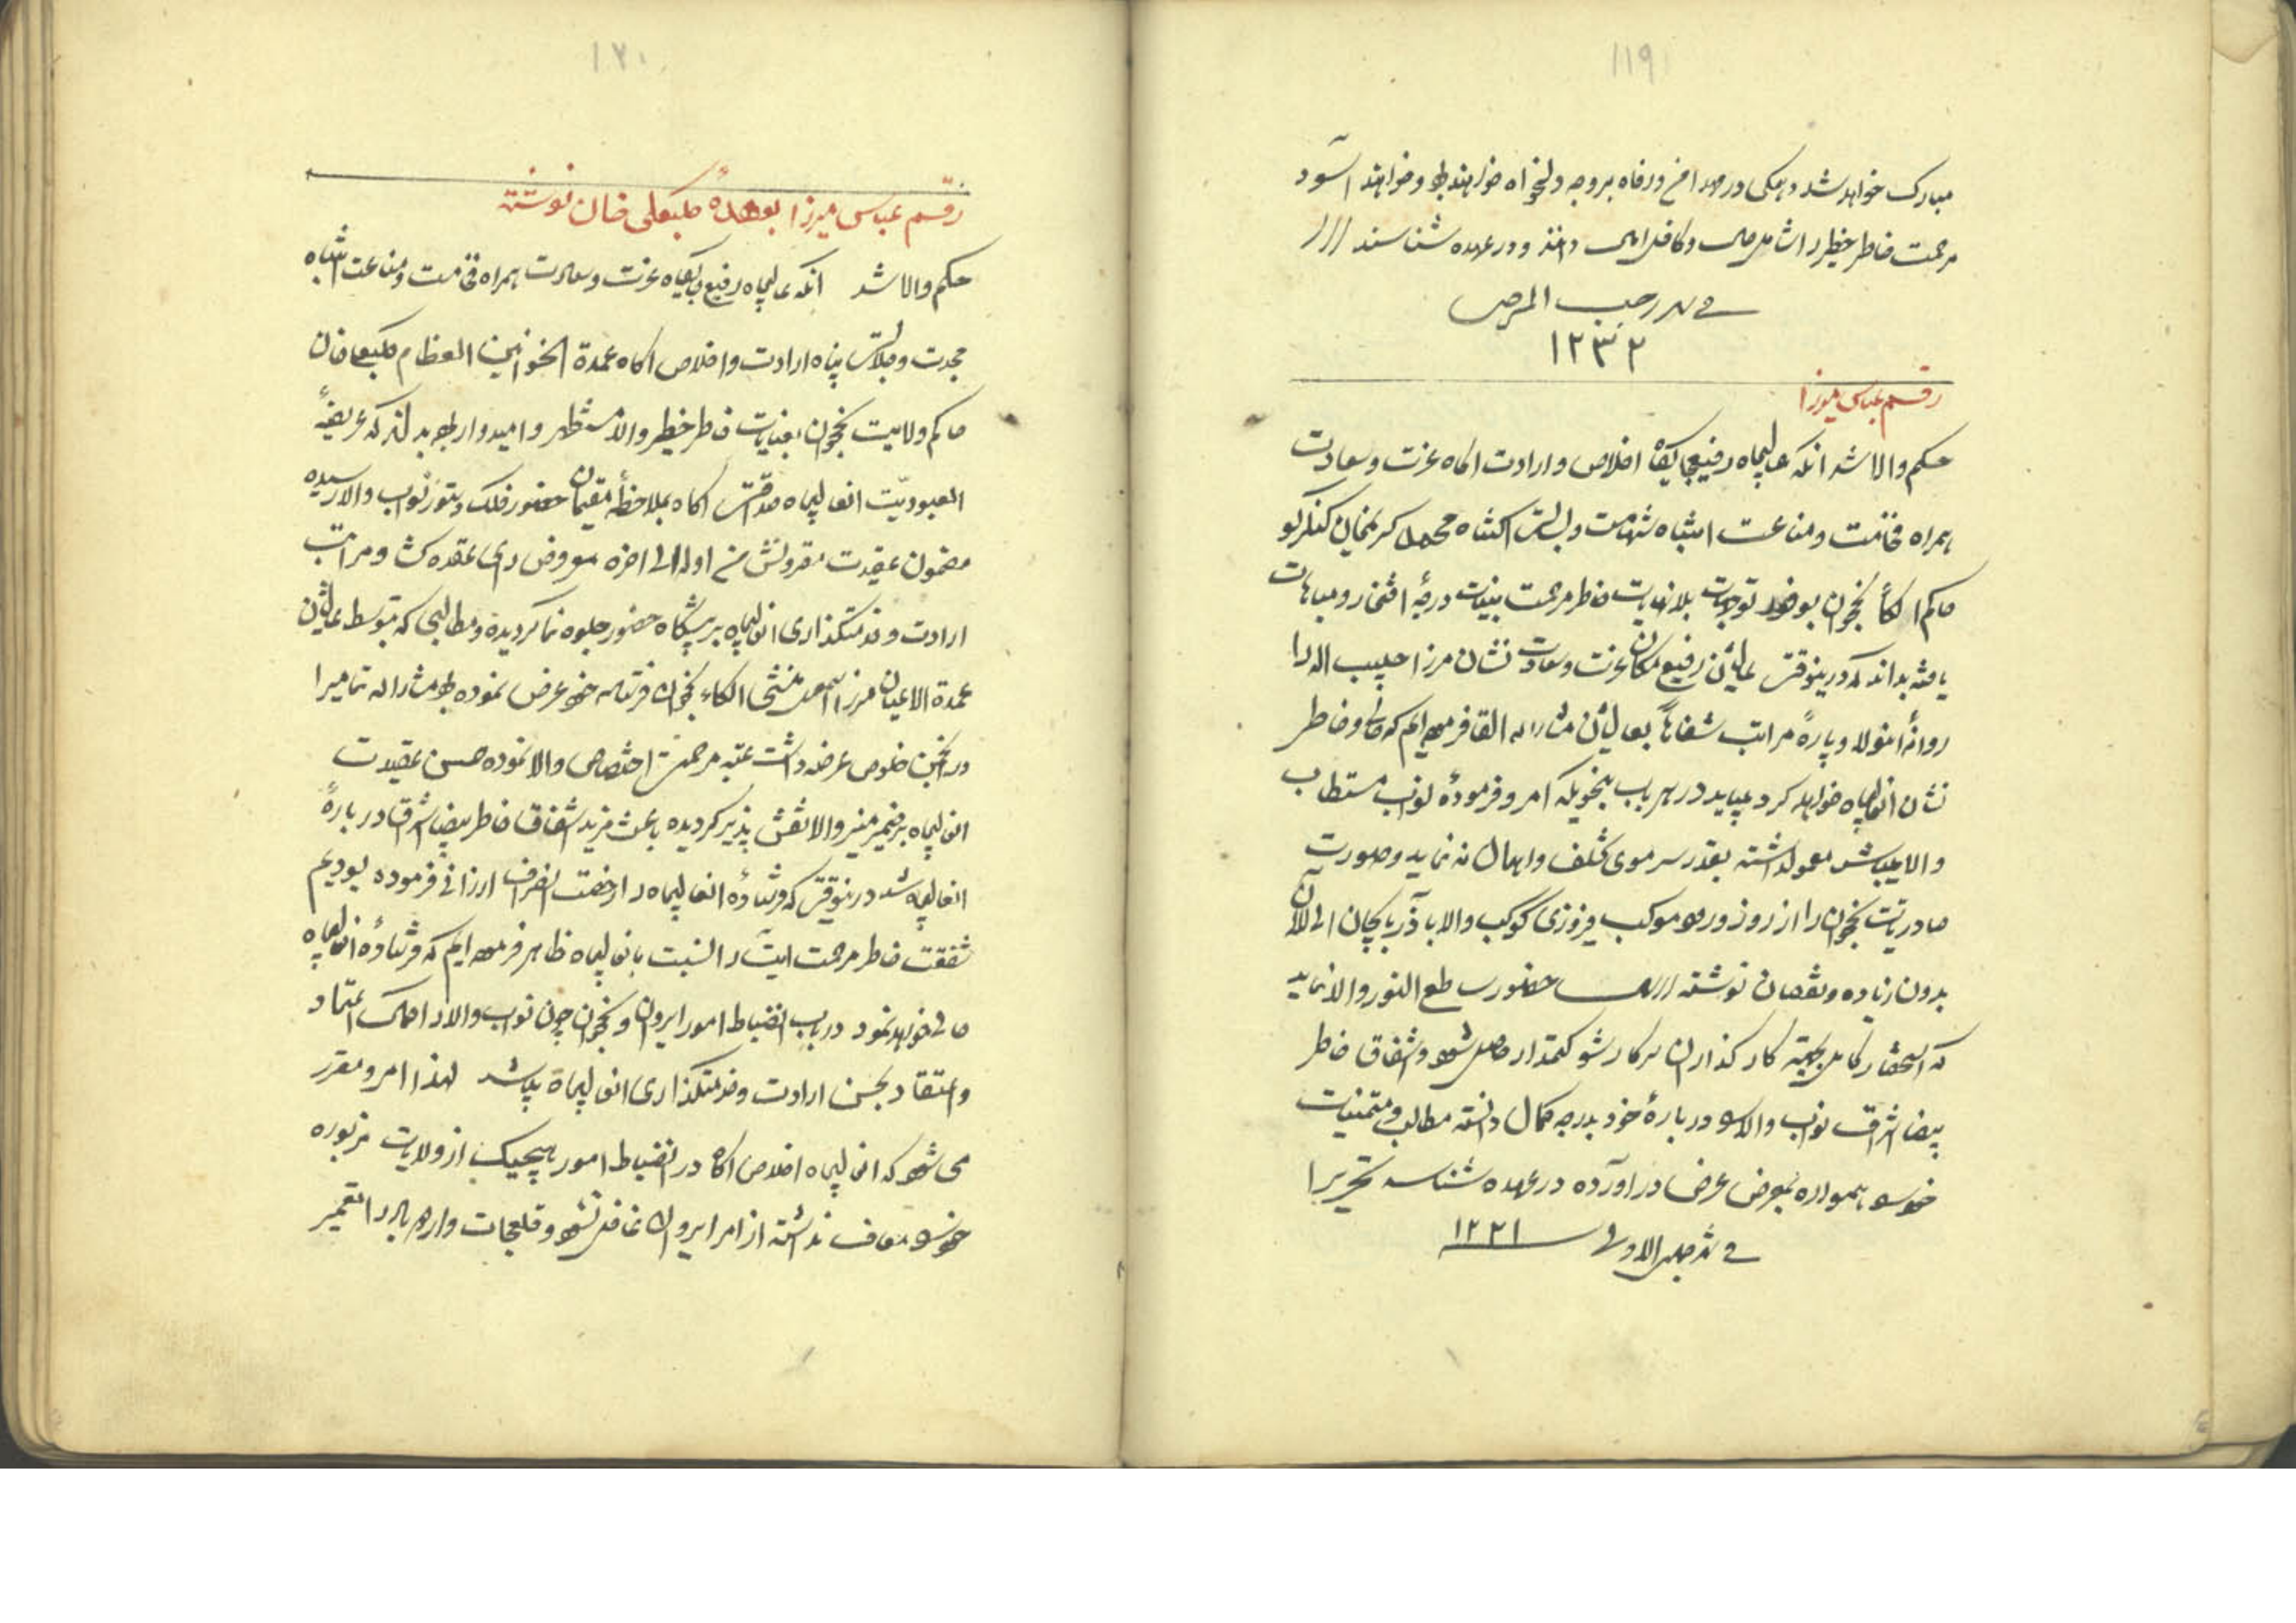 ۱۱۹
مبارک خواهد شد و همگی در مهد امن و رفاه بر وجه دلخواه خواهند بود و خواهند آسود
مرحمت خاطر خطیر را شامل حال و کافل دانند و در عهده شناسند
فی شهر رجب المرجب
۱۲۳۲
رقم عباس میرزا
حکم والا شد آنکه عالیجاه رفیع جایگاه اخلاص و ارادت آگاه عزت و سعادت
همراه فخامت و مناعت انتباه شهامت و بسالت اکتناه محمد کریمخان کنگرلو
حاکم الکاء نخجوان بوفور توجهات بلانهایات خاطر مرحمت بینات درجهٔ افتخار و مباهات
یافته بداند که درینوقت عالیشان رفیع مکان عزت و سعادت نشان مرزا حبیب اله را
روانهٔ انولا و پارهٔ مراتب شفاهاً بعالیشان مشارالیه القا فرموده ایم که حالی و خاطر
نشان انعالیجاه خواهد کرد میباید در هر باب بنحویکه امر و فرمودهٔ نواب مستطاب
والا میباشد معمول داشته بقدر سر موی تخلف و اهمال نه نماید و صورت
صادریات نخجوان را از روز ورود موکب فیروزی کوکب والا باذربایجان الی الآن
بدون زیاده و نقصان نوشته ارسال حضور ساطع النور والا نماید
که استحضار کامل بجهة کارگذاران سرکار شوکتمدار حاصل شود و اشفاق خاطر
بیضا اشراق نواب والا را در بارهٔ خود بدرجه کمال دانسته مطالب و متمنیات
خود را همواره بمعرض عرض در آورده در عهده شناسد تحریرا
فی شهر جمادی الاولی ۱۲۲۱
۱۲۰
رقم عباس میرزا بعهدهٔ کلبعلی خان نوشته
حکم والا شد آنکه عالیجاه رفیع جایگاه عزت و سعادت همراه فخامت و مناعت انتباه
مجدت و جلالت پناه ارادت و اخلاص آگاه عمدة الخوانین العظام کلبعلی خان
حاکم ولایت نخجوان بعنایات خاطر خطیر والا مستظهر و امیدوار بوده بداند که عریضهٔ
العبودیّت انعالیجاه صداقت آگاه بملاحظهٔ مقیمان حضور فلک دستور نواب والا رسیده
مضمون عقیدت مقرونش من اوله الی اخره معروض رای عقده کشا و مراتب
ارادت و خدمتگذاری انعالیجاه بر پیشگاه حضور جلوه نما گردیده و مطالبی که بتوسط عالیشان
عمدة الاعیان مرزا اسمعیل منشی الکاء نخجوان فرستاده خود عرض نموده بود مشارالیه تمامیرا
در انجمن خلوص عرضه داشت عتبه مرحمت اختصاص والا نموده حسن عقیدت
انعالیجاه بر ضمیر منیر والا نقش پذیر گردیده باعث مزید اشفاق خاطر بیضا اشراق در بارهٔ
انعالیجاه شد درینوقت که فرستادهٔ انعالیجاه را رخصت انصراف ارزانی فرموده بودیم
شفقت خاطر مرحمت آیت را نسبت بانعالیجاه ظاهر فرموده ایم که فرستادهٔ انعالیجاه
حالی خواهد نمود در باب انضباط امور ایروان و نخجوان چون نواب والا را کمال اعتماد
و اعتقاد بحسن ارادت و خدمتگذاری انعالیجاه میباشد لهذا امر و مقرر
می شود که انعالیجاه اخلاص آگاه در انضباط امور هیچیک از ولایات مزبوره
خود را معاف نداشته از امر ایروان غافل نشود و قلعجات را تعمیر